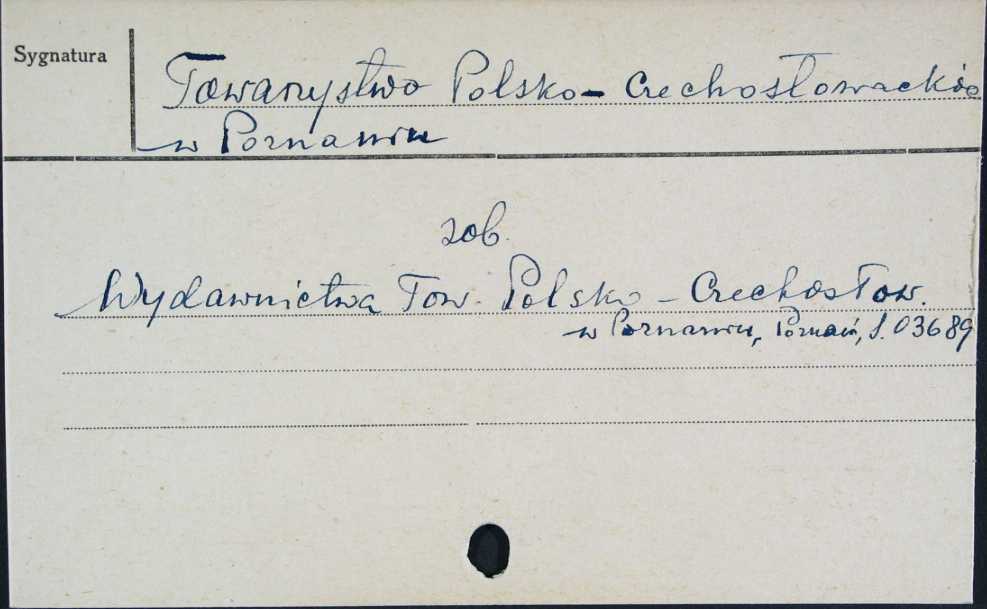 Sygnatura
Towarzystwo Polsko-Czechosłowackie
w Poznaniu
zob.
Wydawnictwa Tow. Polsko-Czechosłow.
w Poznaniu, Poznań, S. 03689